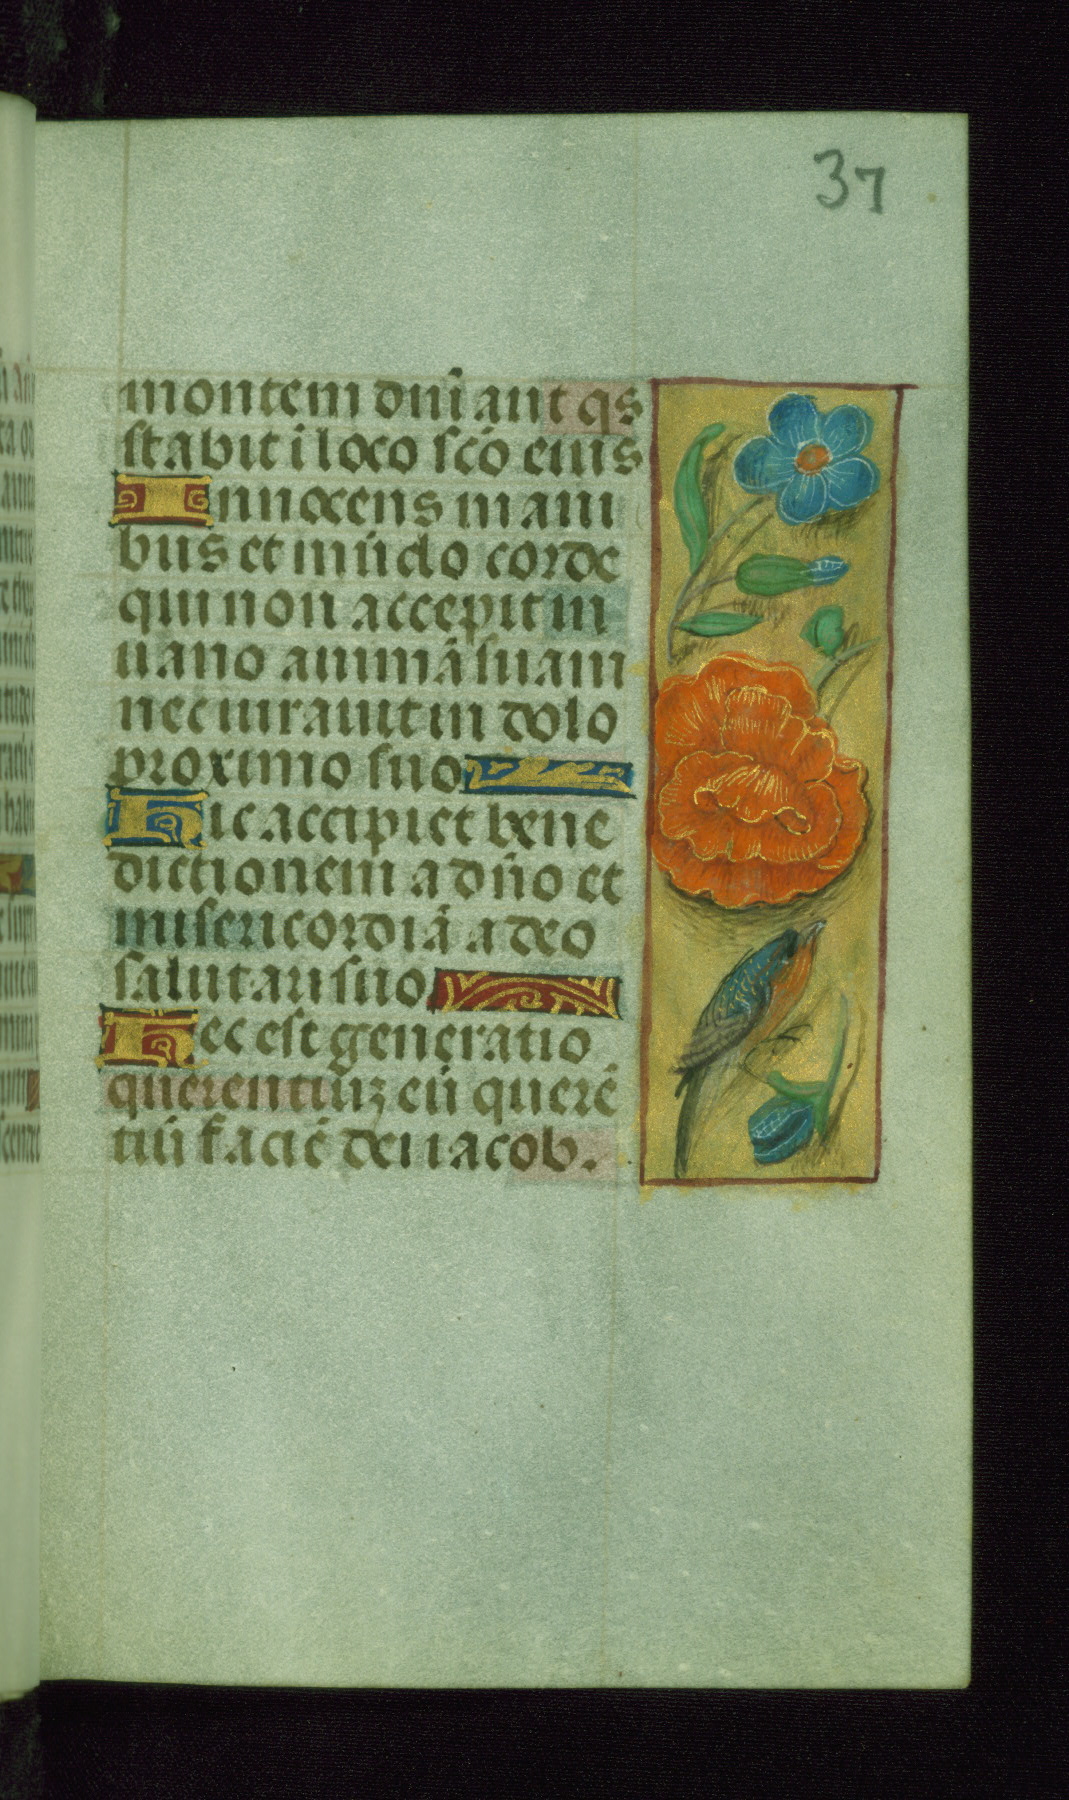 37
montem dnĩ aut qs
stabit ĩ loco scõ eius
Innocens mani
bus et mũdo corde
qui non accepit in
uano animã suam
nec iurauit in dolo
proximo suo
Hic accipiet bene
dictionem a dño et
misericordiã a deo
salutari suo
Hec est generatio
querentiũꝫ eũ querẽ
tiũ faciẽ dei iacob.